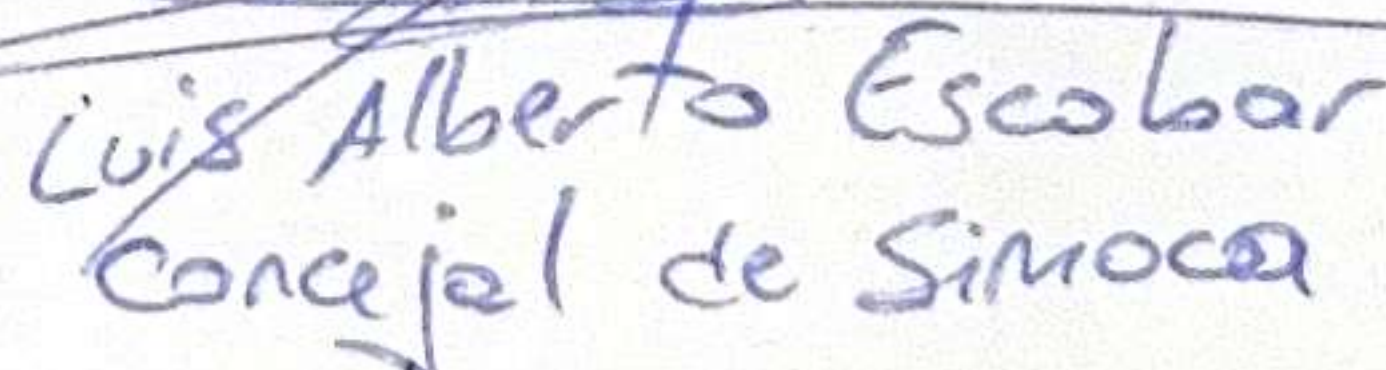 Luis Alberto Escobar
Concejal de Simoca